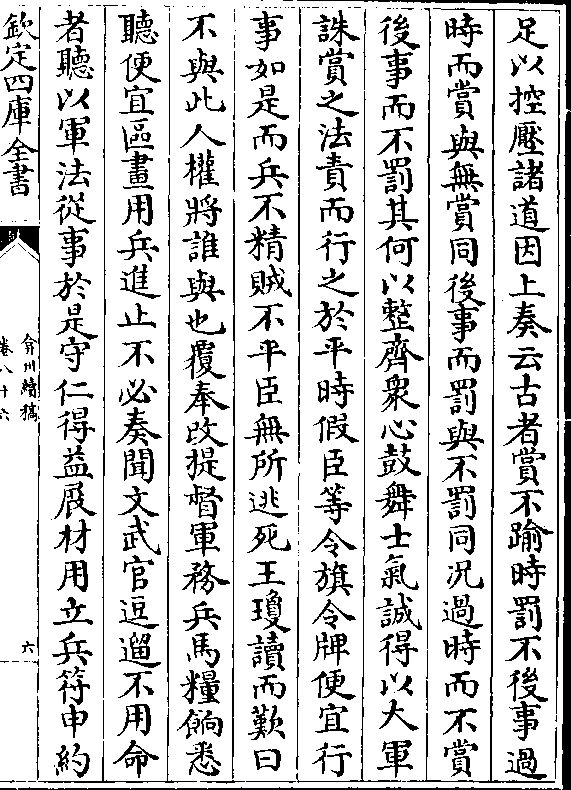 足以控壓諸道因上奏云古者賞不踰時罰不後事過
時而賞與無賞同後事而罰與不罰同况過時而不賞
後事而不罰其何以整齊衆心鼓舞士氣誠得以大軍
誅賞之法責而行之於平時假臣等令旗令牌便宜行
事如是而兵不精賊不平臣無所逃死王瓊讀而歎曰
不與此人權將誰與也覆奉改提督軍務兵馬糧餉悉
聽便宜區畫用兵進止不必奏聞文武官逗遛不用命
者聽以軍法從事於是守仁得益展材用立兵符申約
欽定四庫全書
弇州續稿
卷八十六
六